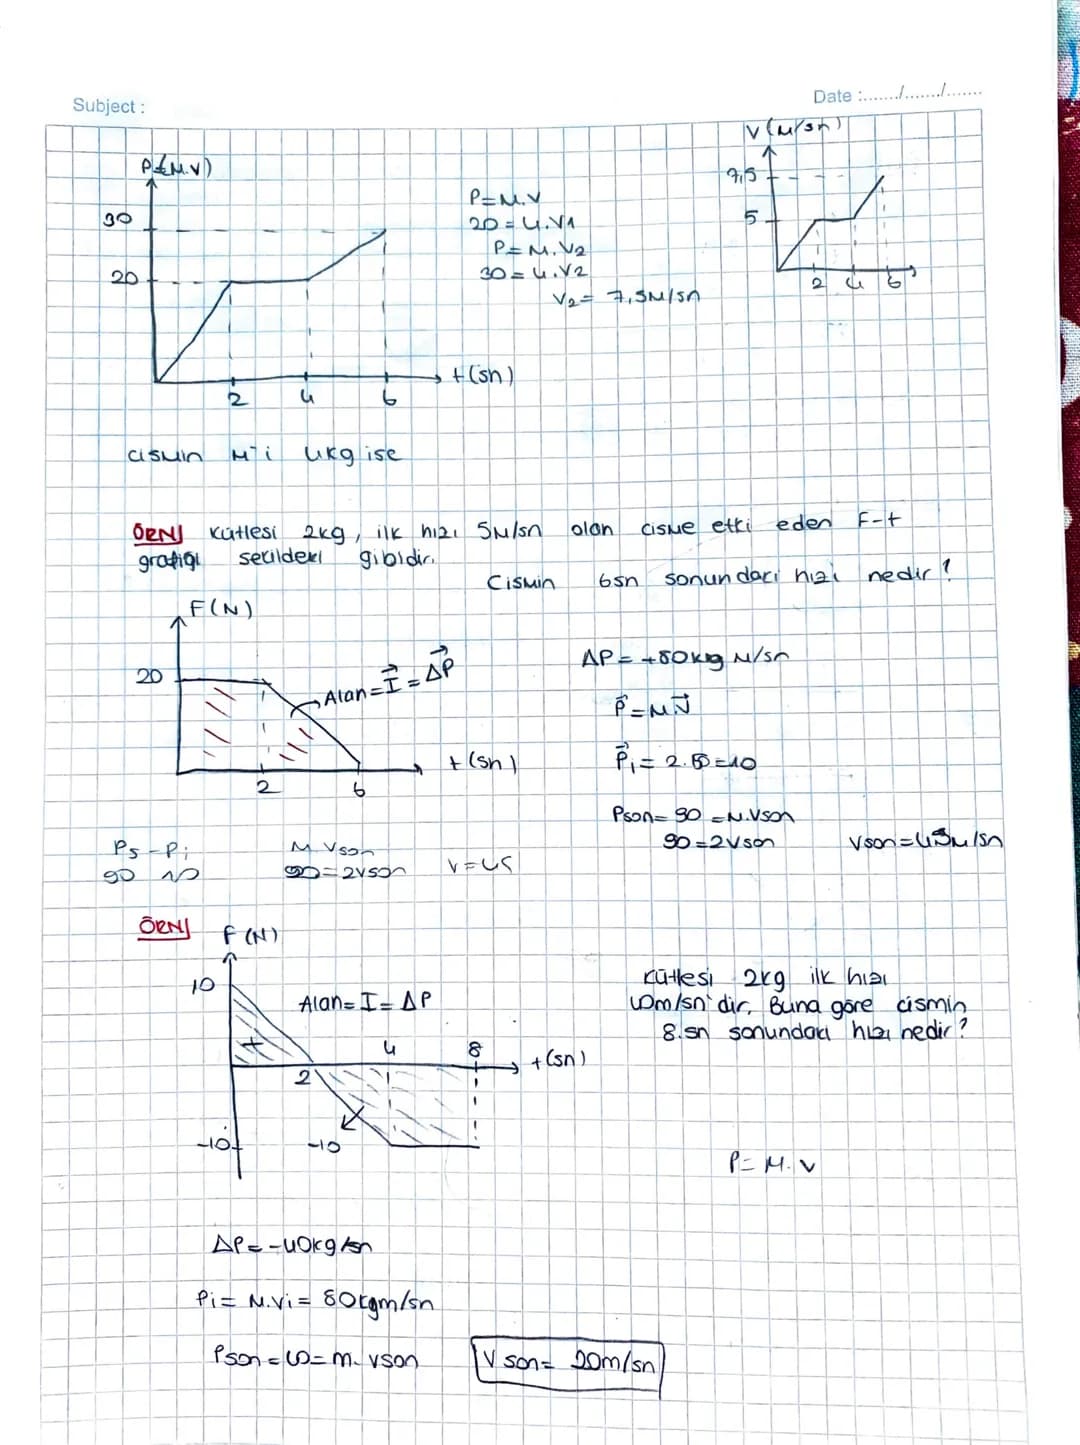 Subject :
Date :......./......./.......
P(M.V)
30
20
2 4 6
t(sn)
P=M.V
20=4.V1
P=M.V2
30=4.V2
V2= 7,5M/sn
V(M/sn)
7,5
5
2 4 6
cismin M'i 4kg ise
ÖRN/ Kütlesi 2kg, ilk hızı 5M/sn olan cisme etki eden F-t
grafiği şekildeki gibidir.
Cismin 6sn sonundaci hızı nedir?
F(N)
20
Alan=I=ΔP
2 6
t(sn)
ΔP=+80kg M/sn
P=MV
P₁=2.5=10
Pson=90=M.Vson
90=2Vson
Vson=45M/sn
Ps-Pi
90 10
M Vson
90=2Vson
V=45
ÖRN/
F(N)
10
Alan=I=ΔP
+
2 4 8
t(sn)
-10
-10
Kütlesi 2kg ilk hızı
40m/sn'dir. Buna göre cismin
8.sn sonundakı hızı nedir?
P=M.V
ΔP=-40kg/sn
Pi=M.Vi=80kgm/sn
Pson=40=m.vson
Vson=20m/sn